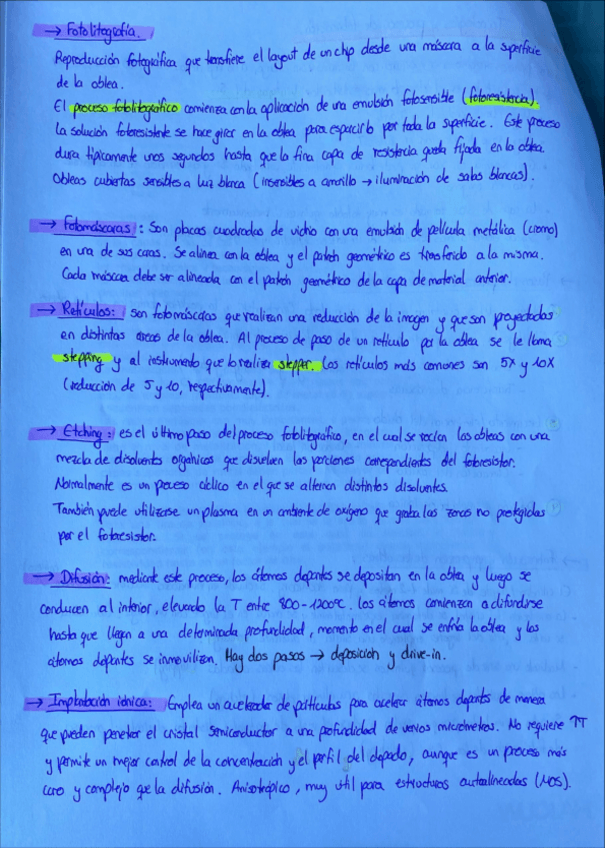 → Fotolitografía.
Reproducción fotográfica que transfiere el layout de un chip desde una máscara a la superficie
de la oblea.
El proceso fotolitográfico comienza con la aplicación de una emulsión fotosensible (fotoresistencia).
La solución fotoresistente se hace girar en la oblea para espacirlo por toda la superficie. Este proceso
dura típicamente unos segundos hasta que la fina capa de resistencia queda fijada en la oblea.
Obleas cubiertas sensibles a luz blanca (insensibles a amarillo → iluminación de salas blancas).
→ Fotomáscaras: Son placas cuadradas de vidrio con una emulsión de película metálica (cromo)
en una de sus caras. Se alinea con la oblea y el patrón geométrico es transferido a la misma.
Cada máscara debe ser alineada con el patrón geométrico de la capa de material anterior.
→ Retículos: son fotomáscaras que realizan una reducción de la imagen y que son proyectadas
en distintas areas de la oblea. Al proceso de paso de un retículo por la oblea se le llama
stepping y al instrumento que lo realiza stepper. Los retículos más comunes son 5X y 10X
(reducción de 5 y 10, respectivamente).
→ Etching: es el último paso del proceso fotolitográfico, en el cual se rocían las obleas con una
mezcla de disolventes organicos que disuelven las porciones correspondientes del fotoresistor.
Normalmente es un proceso cíclico en el que se alternan distintos disolventes.
También puede utilizarse un plasma en un ambiente de oxígeno que graba las zonas no protegidas
por el fotoresistor.
→ Difusión: mediante este proceso, los átomos dopantes se depositan en la oblea y luego se
conducen al interior, elevando la T entre 800-1200ºC. Los átomos comienzan a difundirse
hasta que llegan a una determinada profundidad, momento en el cual se enfría la oblea y los
átomos dopantes se inmovilizan. Hay dos pasos → deposición y drive-in.
→ Implantación iónica: Emplea un acelerador de partículas para acelerar átomos dopantes de manera
que pueden penetrar el cristal semiconductor a una profundidad de varios micrómetros. No requiere ↑T
y permite un mejor control de la concentración y el perfil del dopado, aunque es un proceso más
caro y complejo que la difusión. Anisotrópico, muy útil para estructuras autoalineadas (MOS).